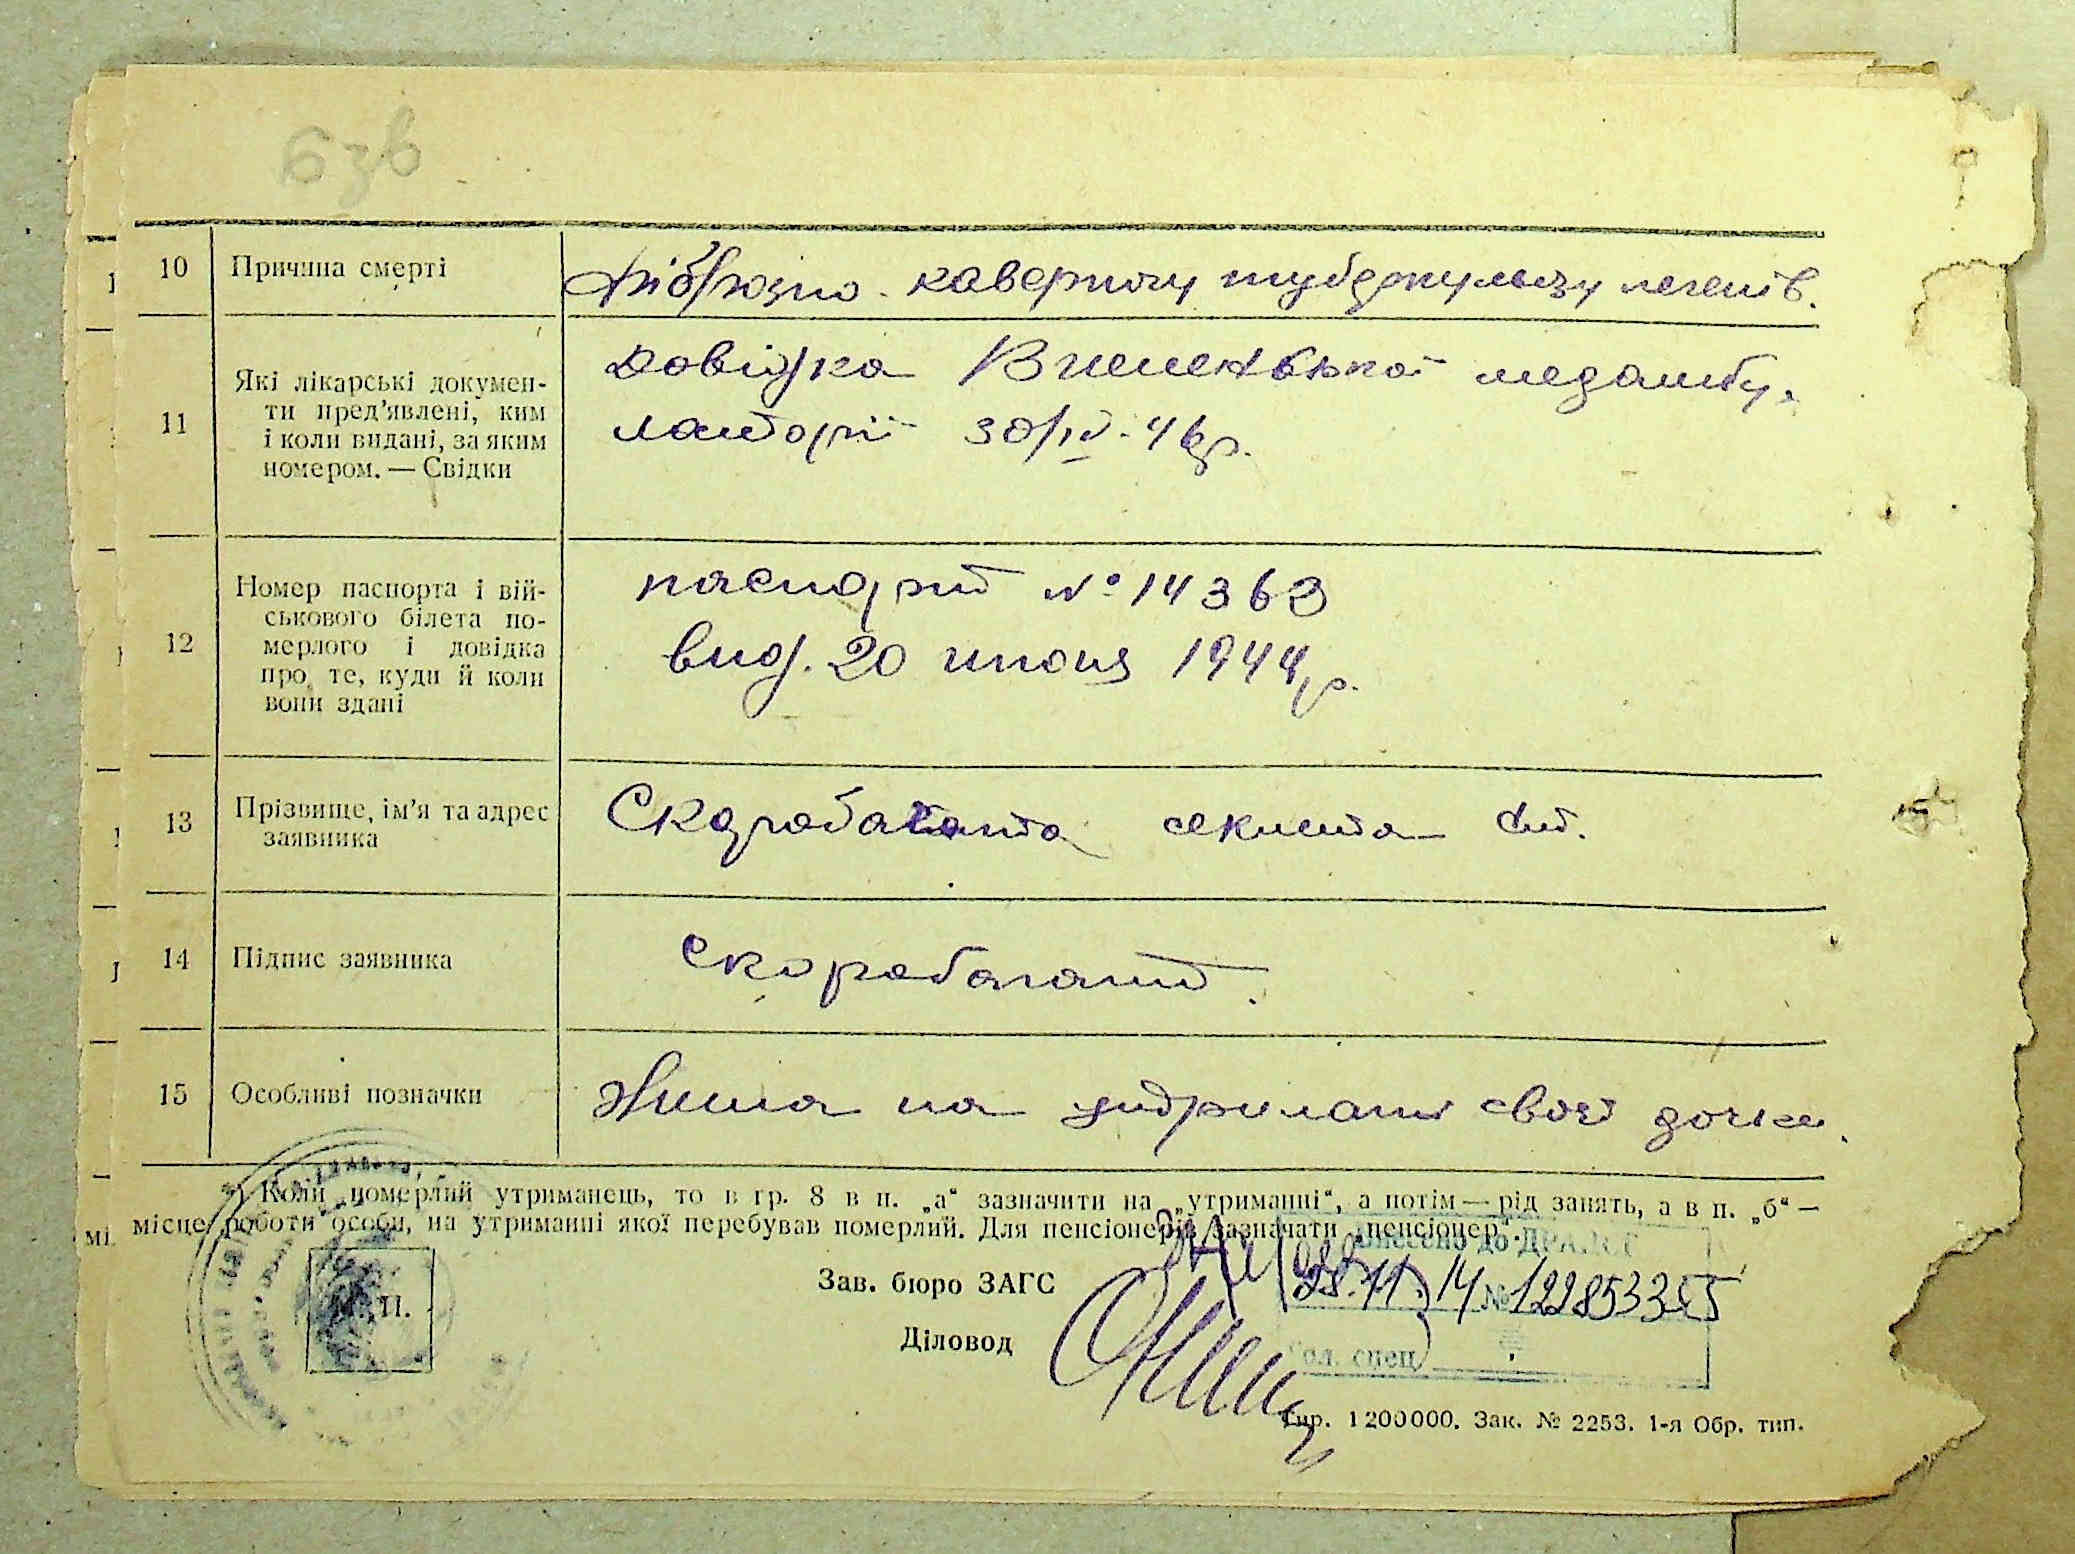 63в
10 Причина смерті Фіброзно. каверночу туберкульозу легенів.
11 Які лікарські документи пред'явлені, ким і коли видані, за яким номером. — Свідки
Довідка медамбу-
латорії 30/IV-46р.
12 Номер паспорта і військового білета померлого і довідка про те, куди й коли вони здані
паспорт №14363
вид. 20 июня 1944р.
13 Прізвище, ім'я та адрес заявника
Скоробагата
14 Підпис заявника Скоробагат.
15 Особливі позначки Жила на удержанні своєї дочки.
*) Коли померлий утриманець, то в гр. 8 в п. „а“ зазначити на „утриманні“, а потім — рід занять, а в п. „б“ —
місце роботи особи, на утриманні якої перебував померлий. Для пенсіонерів зазначати „пенсіонер“.
Внесено до ДРАЦСГ
Зав. бюро ЗАГС
28.11.14 № 12285335
М. П.
Діловод
Гол. спец
Тир. 1200000. Зак. № 2253. 1-я Обр. тип.